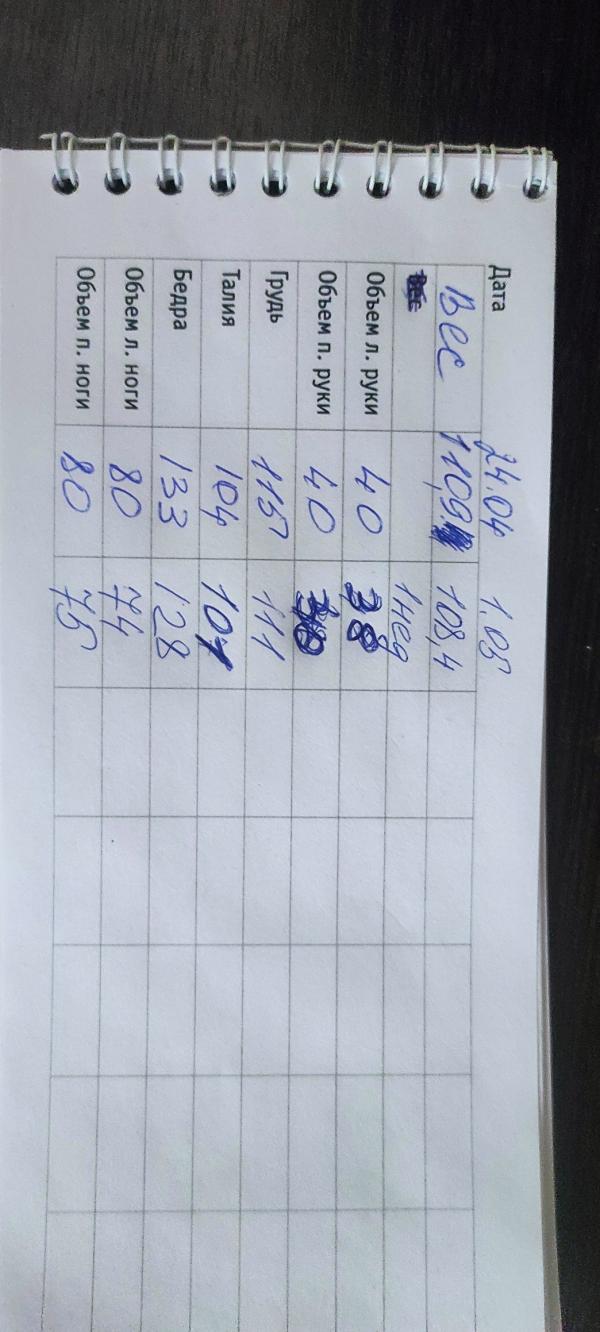 Дата 24.04 1.05
Вес 110,9 108,4
Вес 1 нед
Объем л. руки 40 38
Объем п. руки 40
Грудь 115 111
Талия 104 101
Бедра 133 128
Объем л. ноги 80 74
Объем п. ноги 80 75